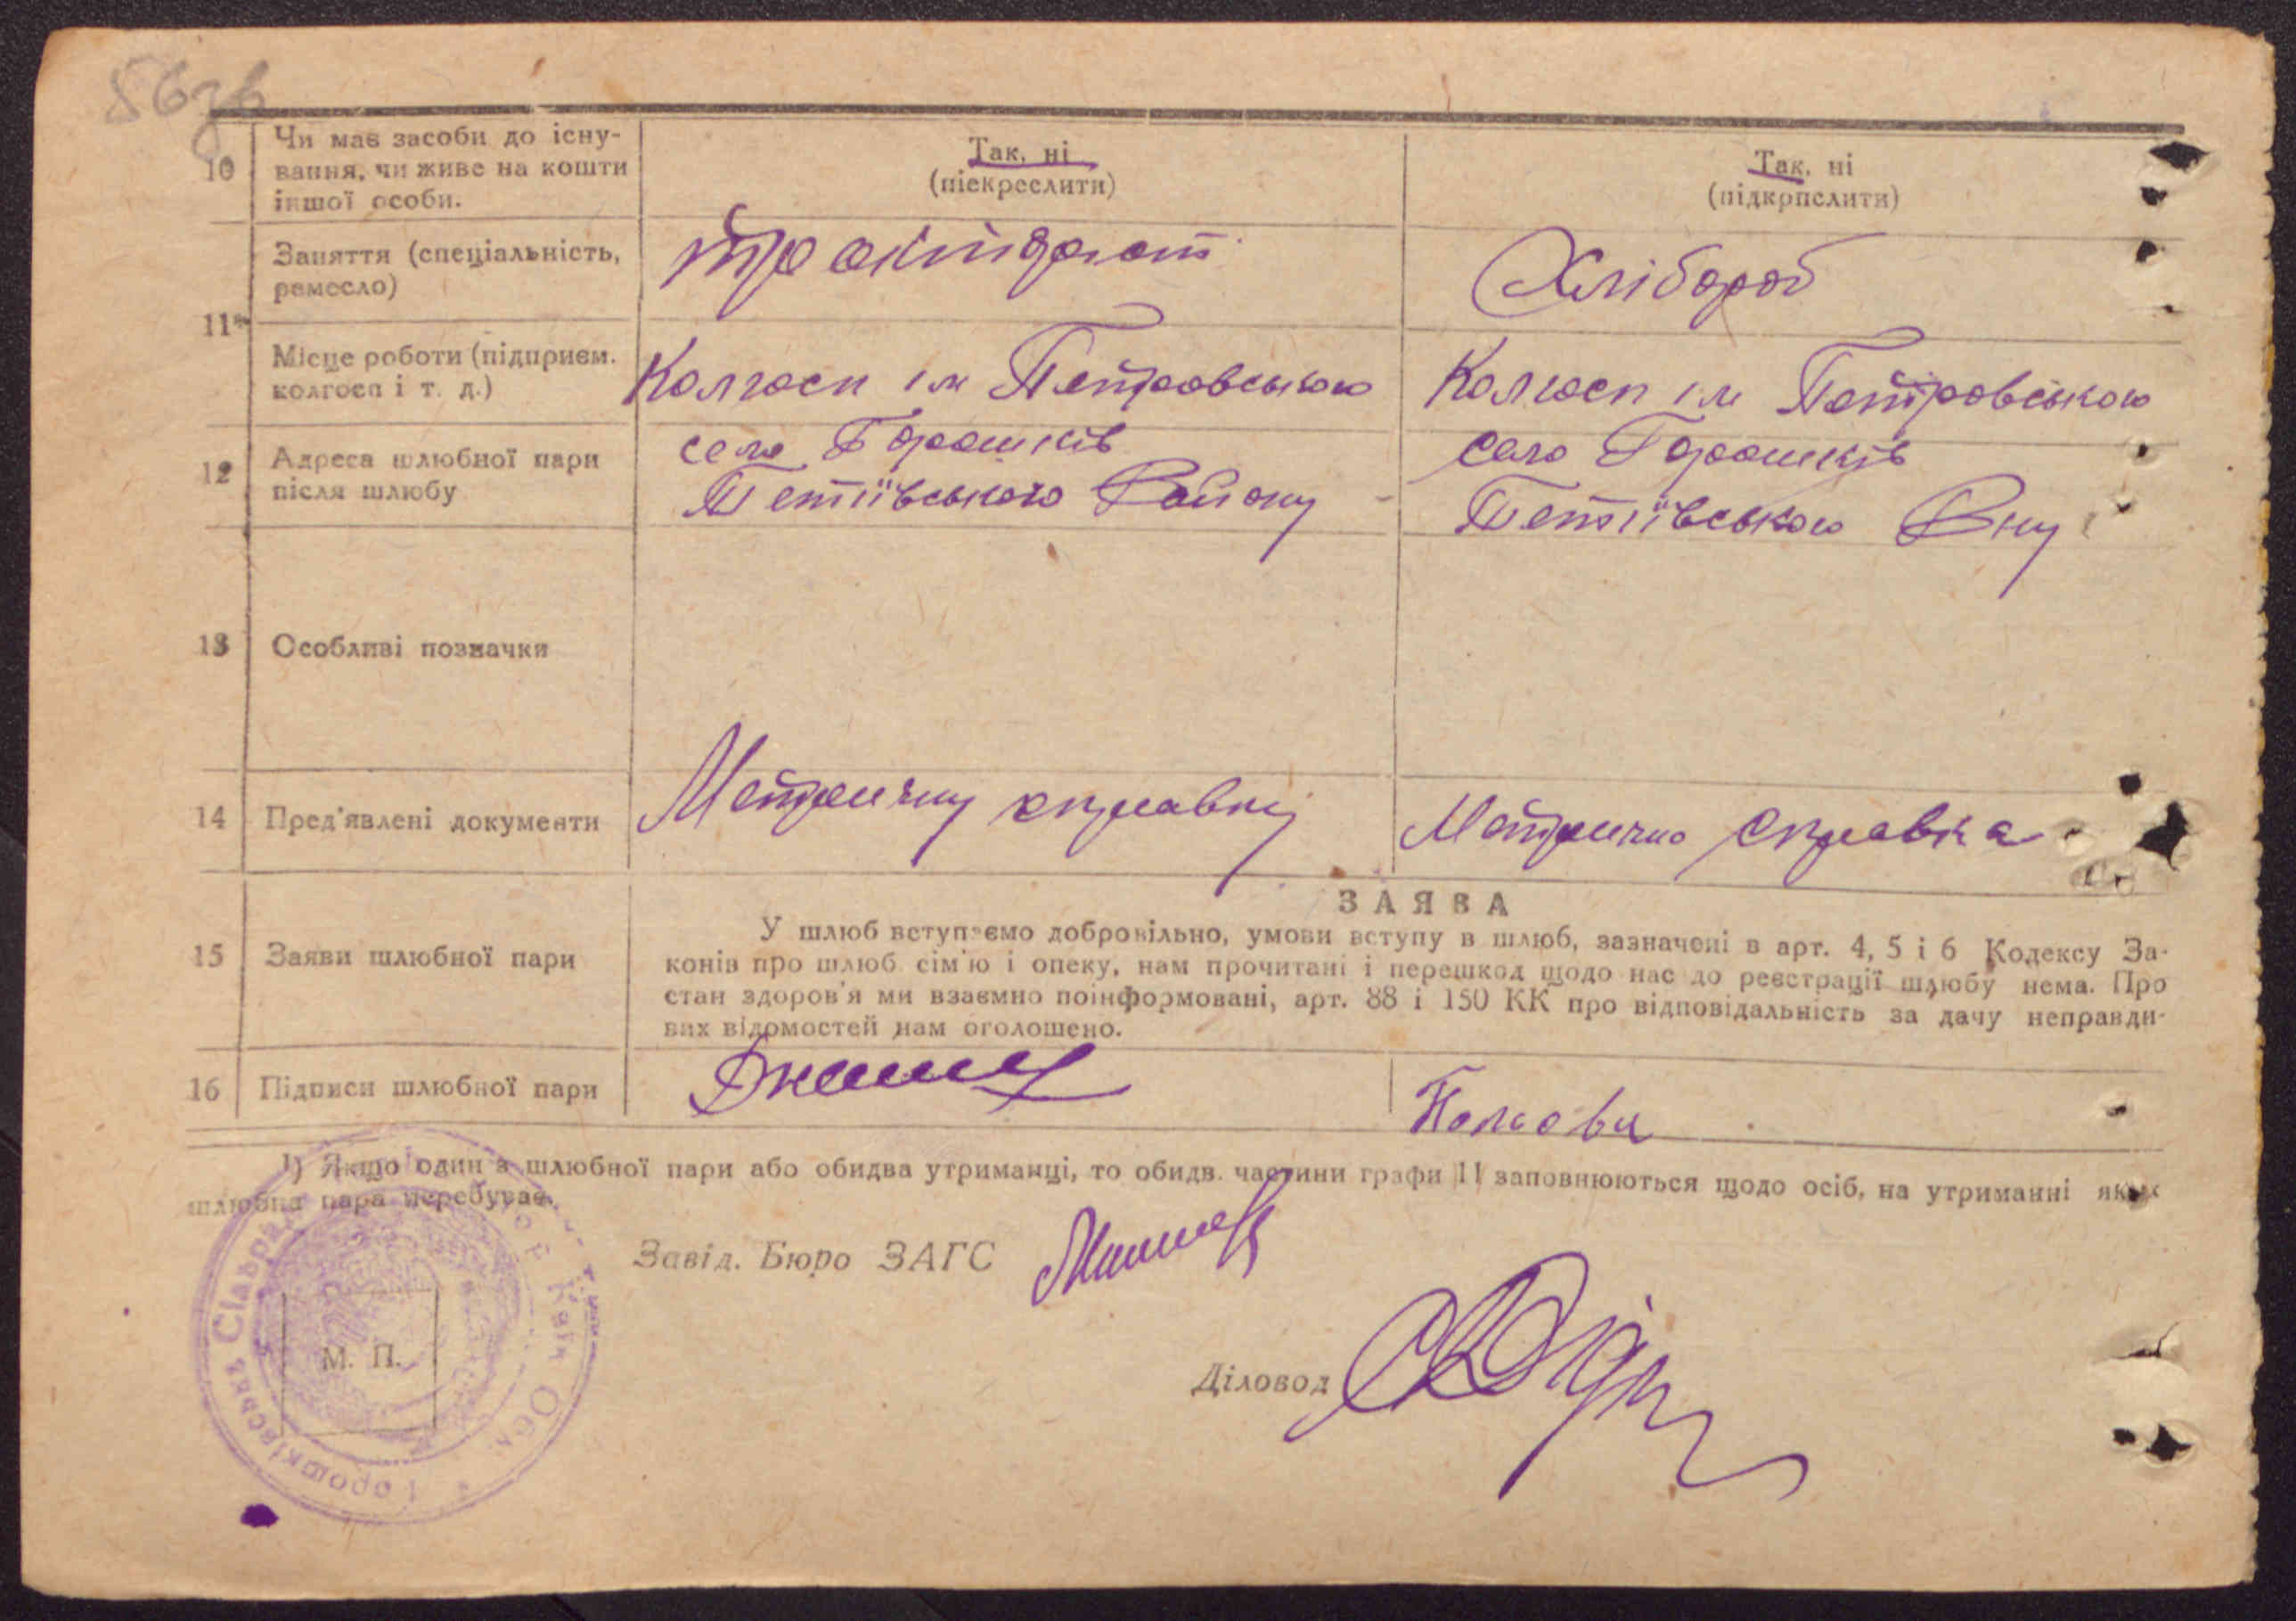 10
Чи має засоби до існу-
вання, чи живе на кошти
іншої особи.
Так, ні
(піекреслити)
Так, ні
(підкрпслити)
11
Заняття (спеціальність,
ремесло)
Хлібороб
Місце роботи (підприєм.
колгосп і т. д.)
Колгосп ім Петровського
Колгосп ім Петровського
12
Адреса шлюбної пари
після шлюбу
село Горошків
Тетіївського Району
село Горошків
Тетіївського Рну
13
Особливі позначки
14
Пред'явлені документи
Метричну справку
Метрична справка
15
Заяви шлюбної пари
ЗАЯВА
У шлюб вступаємо добровільно, умови вступу в шлюб, зазначені в арт. 4, 5 і 6 Кодексу За-
конів про шлюб сім'ю і опеку, нам прочитані і перешкод щодо нас до реєстрації шлюбу нема. Про
стан здоров'я ми взаємно поінформовані, арт. 88 і 150 КК про відповідальність за дачу неправди-
вих відомостей нам оголошено.
16
Підписи шлюбної пари
1) Якщо один з шлюбної пари або обидва утриманці, то обидв. частини графи 11 заповнюються щодо осіб, на утриманні яких
шлюбна пара перебуває.
Завід. Бюро ЗАГС
М. П.
Діловод